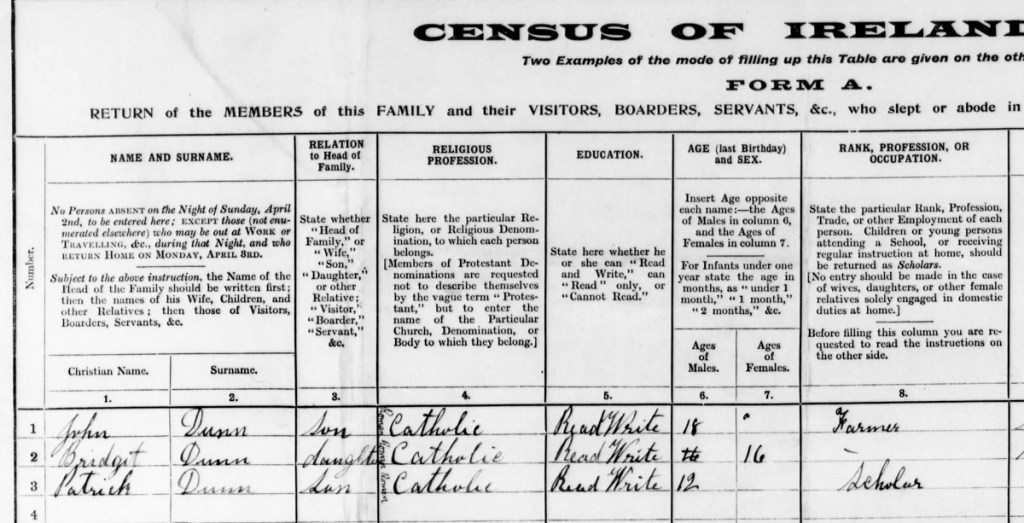 CENSUS OF IRELAND
Two Examples of the mode of filling up this Table are given on the oth
FORM A.
RETURN of the MEMBERS of this FAMILY and their VISITORS, BOARDERS, SERVANTS, &c., who slept or abode in
Number.
NAME AND SURNAME.
No Persons ABSENT on the Night of Sunday, April
2nd, to be entered here; EXCEPT those (not enu-
merated elsewhere) who may be out at WORK or
TRAVELLING, &c., during that Night, and who
RETURN HOME ON MONDAY, APRIL 3RD.
Subject to the above instruction, the Name of the
Head of the Family should be written first;
then the names of his Wife, Children, and
other Relatives; then those of Visitors,
Boarders, Servants, &c.
Christian Name.
Surname.
1.
2.
RELATION
to Head of
Family.
State whether
"Head of
Family," or
"Wife,"
"Son,"
"Daughter,"
or other
Relative;
"Visitor,"
"Boarder,"
"Servant,"
&c.
3.
RELIGIOUS
PROFESSION.
State here the particular Re-
ligion, or Religious Denom-
ination, to which each person
belongs.
[Members of Protestant De-
nominations are requested
not to describe themselves
by the vague term "Protes-
tant," but to enter the
name of the Particular
Church, Denomination, or
Body to which they belong.]
4.
EDUCATION.
State here whether he
or she can "Read
and Write," can
"Read" only, or
"Cannot Read."
5.
AGE (last Birthday)
and SEX.
Insert Age opposite
each name:—the Ages
of Males in column 6,
and the Ages of
Females in column 7.
For Infants under one
year state the age in
months, as "under 1
month," "1 month,"
"2 months," &c.
Ages
of
Males.
Ages
of
Females.
6.
7.
RANK, PROFESSION, OR
OCCUPATION.
State the particular Rank, Profession,
Trade, or other Employment of each
person. Children or young persons
attending a School, or receiving
regular instruction at home, should
be returned as Scholars.
[No entry should be made in the case
of wives, daughters, or other female
relatives solely engaged in domestic
duties at home.]
Before filling this column you are re-
quested to read the instructions on
the other side.
8.
1 John Dunn Son Roman Catholic Read Write 18 " Farmer
2 Bridget Dunn daughter Roman Catholic Read Write 16 –
3 Patrick Dunn Son Roman Catholic Read Write 12 Scholar
4